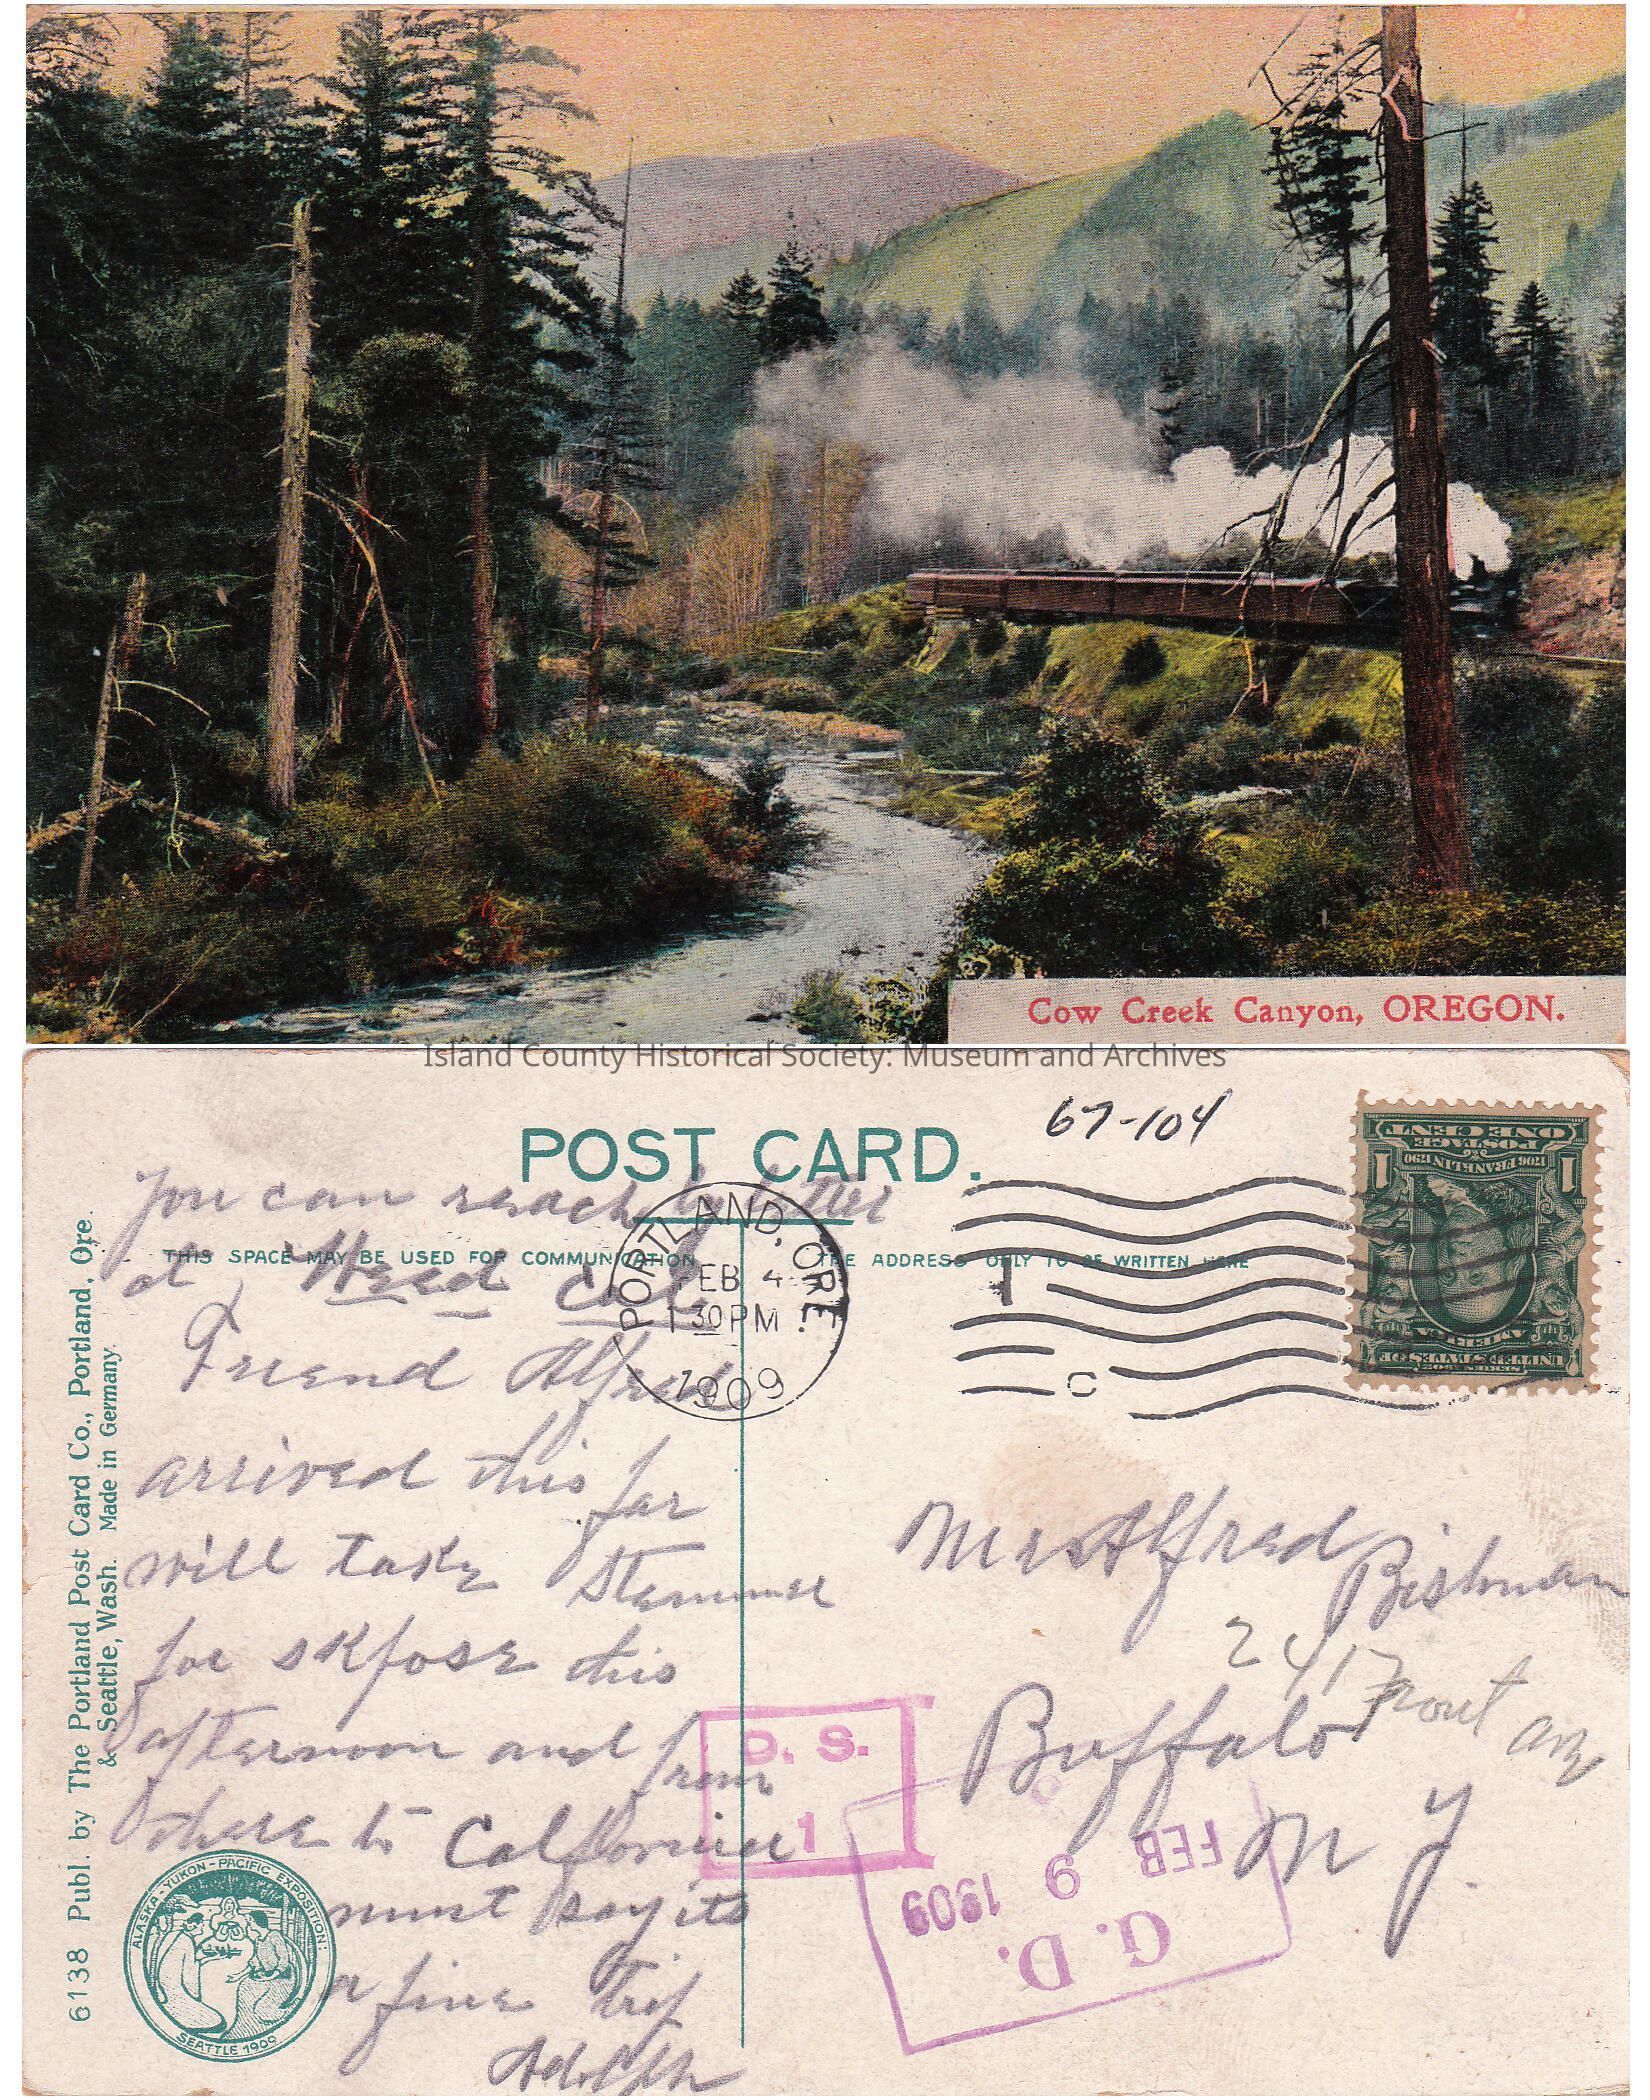 Cow Creek Canyon, OREGON.
Island County Historical Society: Museum and Archives
67-104
POST CARD.
You can reach by letter
THIS SPACE MAY BE USED FOR COMMUNICATION
THE ADDRESS ONLY TO BE WRITTEN HERE
at Weed Cal
Friend Alfred
arrived this far
will take Steammer
for skfose this
afternoon and from
there to California
must say its
a fine trip
Adolph
PORTLAND, ORE.
FEB 4
130 PM
1909
1
C
UNITED STATES OF
AMERICA
1706 FRANKLIN 1790
POSTAGE
ONE CENT
1 1
Mr Alfred Bishman
2417 ave
Buffalo
N Y.
D. S.
1
G. D.
FEB 9 1909
6138 Publ. by The Portland Post Card Co., Portland, Ore.
& Seattle, Wash. Made in Germany.
ALASKA-YUKON-PACIFIC EXPOSITION:
SEATTLE 1909